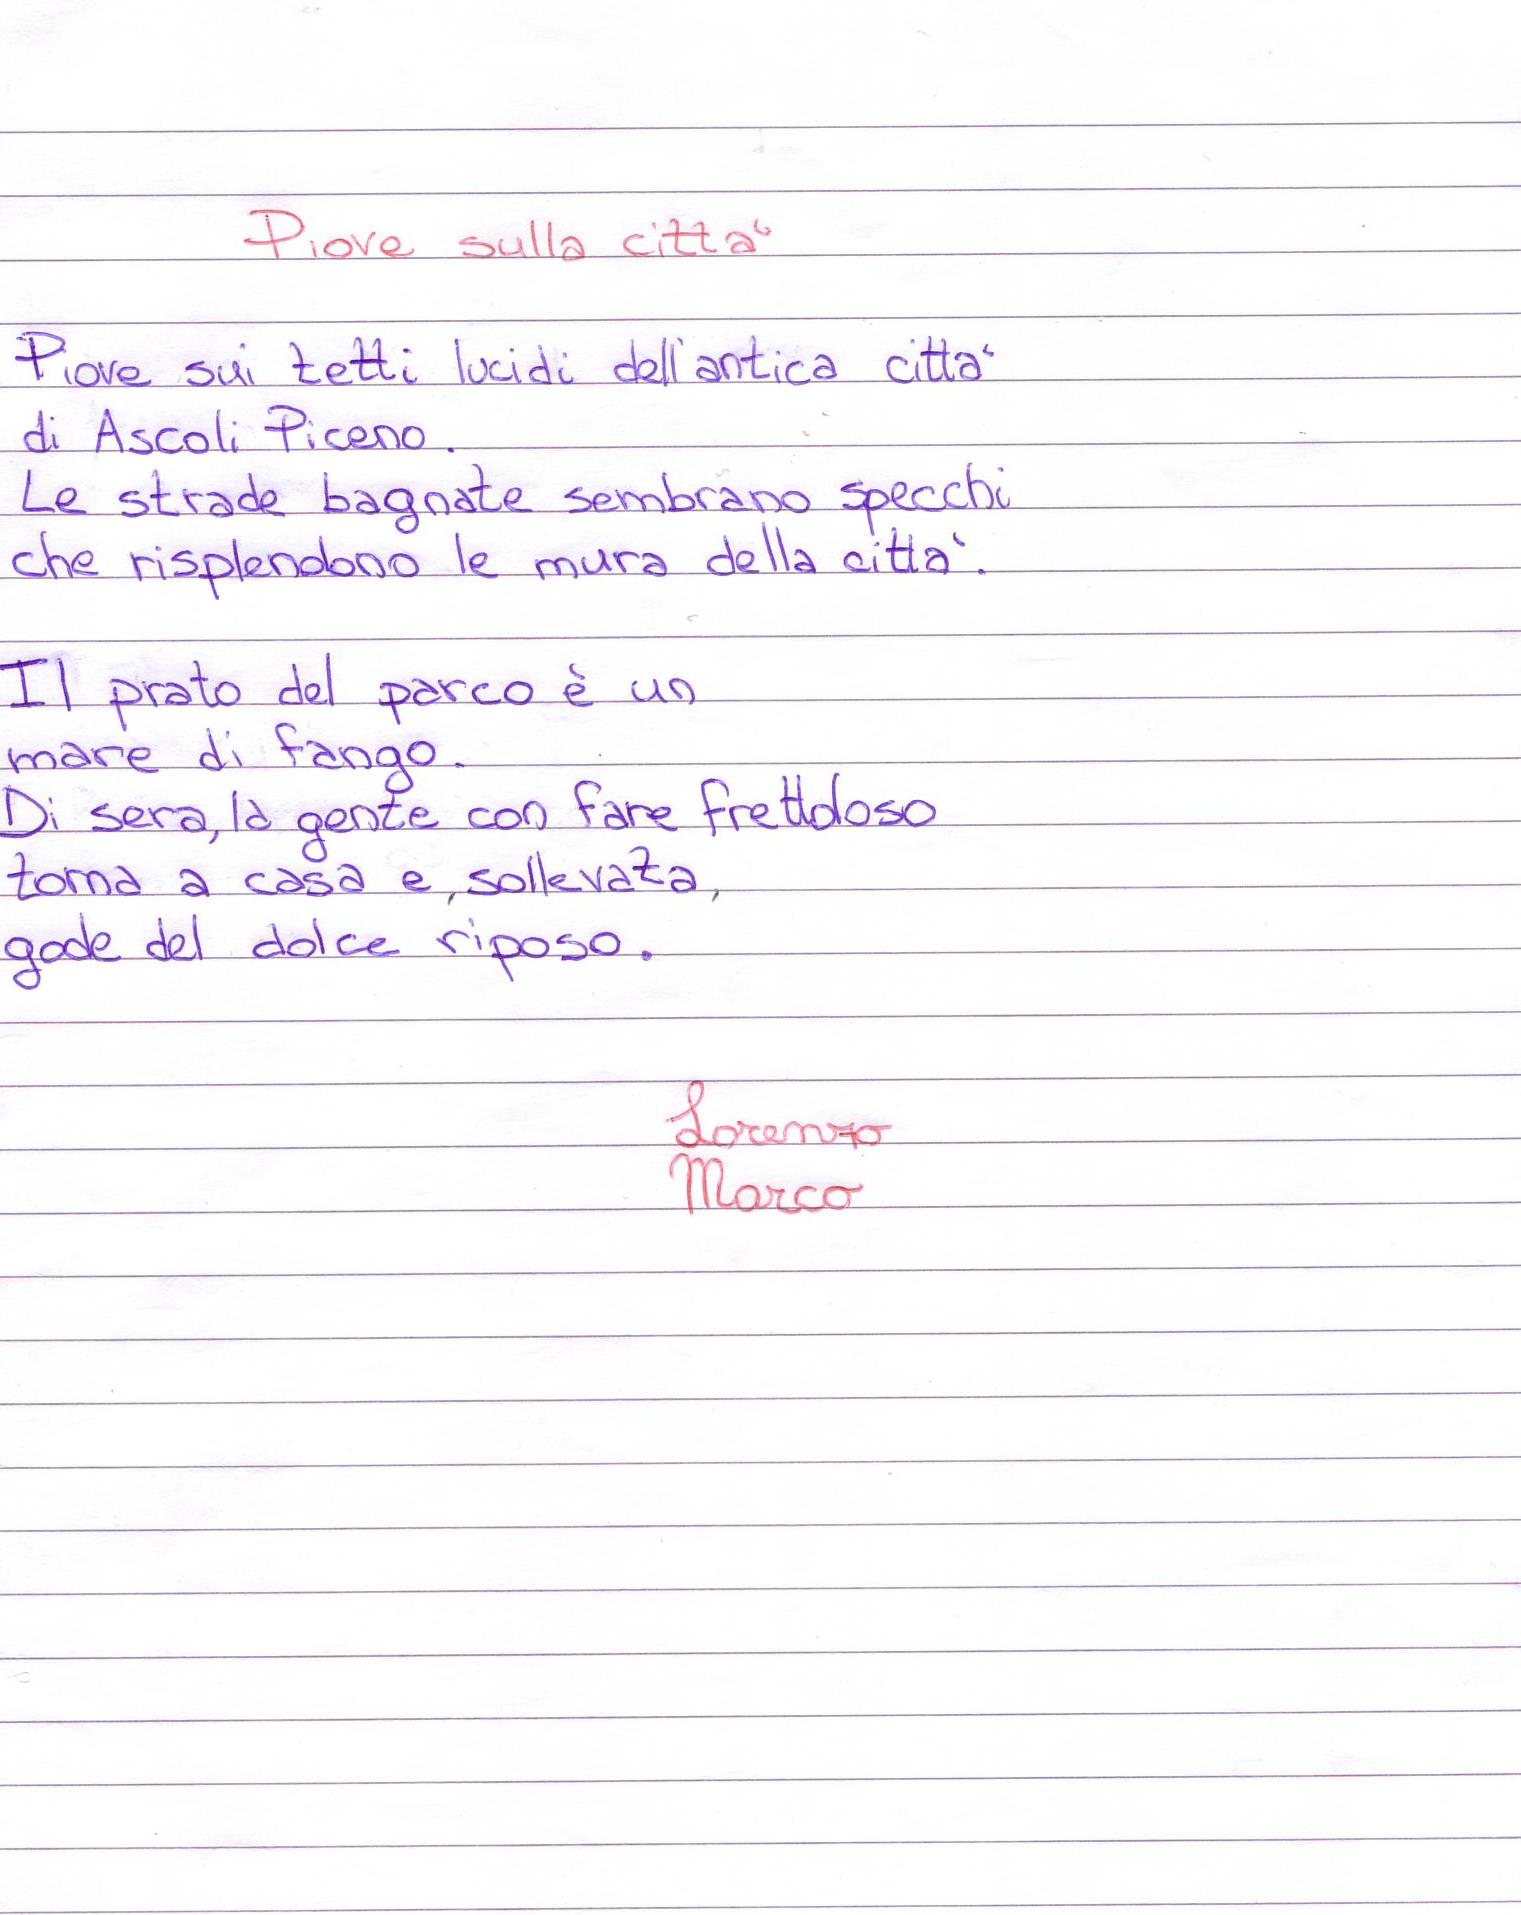 Piove sulla città
Piove sui tetti lucidi dell'antica città
di Ascoli Piceno.
Le strade bagnate sembrano specchi
che risplendono le mura della città.
Il prato del parco è un
mare di fango.
Di sera, la gente con fare frettoloso
torna a casa e, sollevata,
gode del dolce riposo.
Lorenzo
Marco